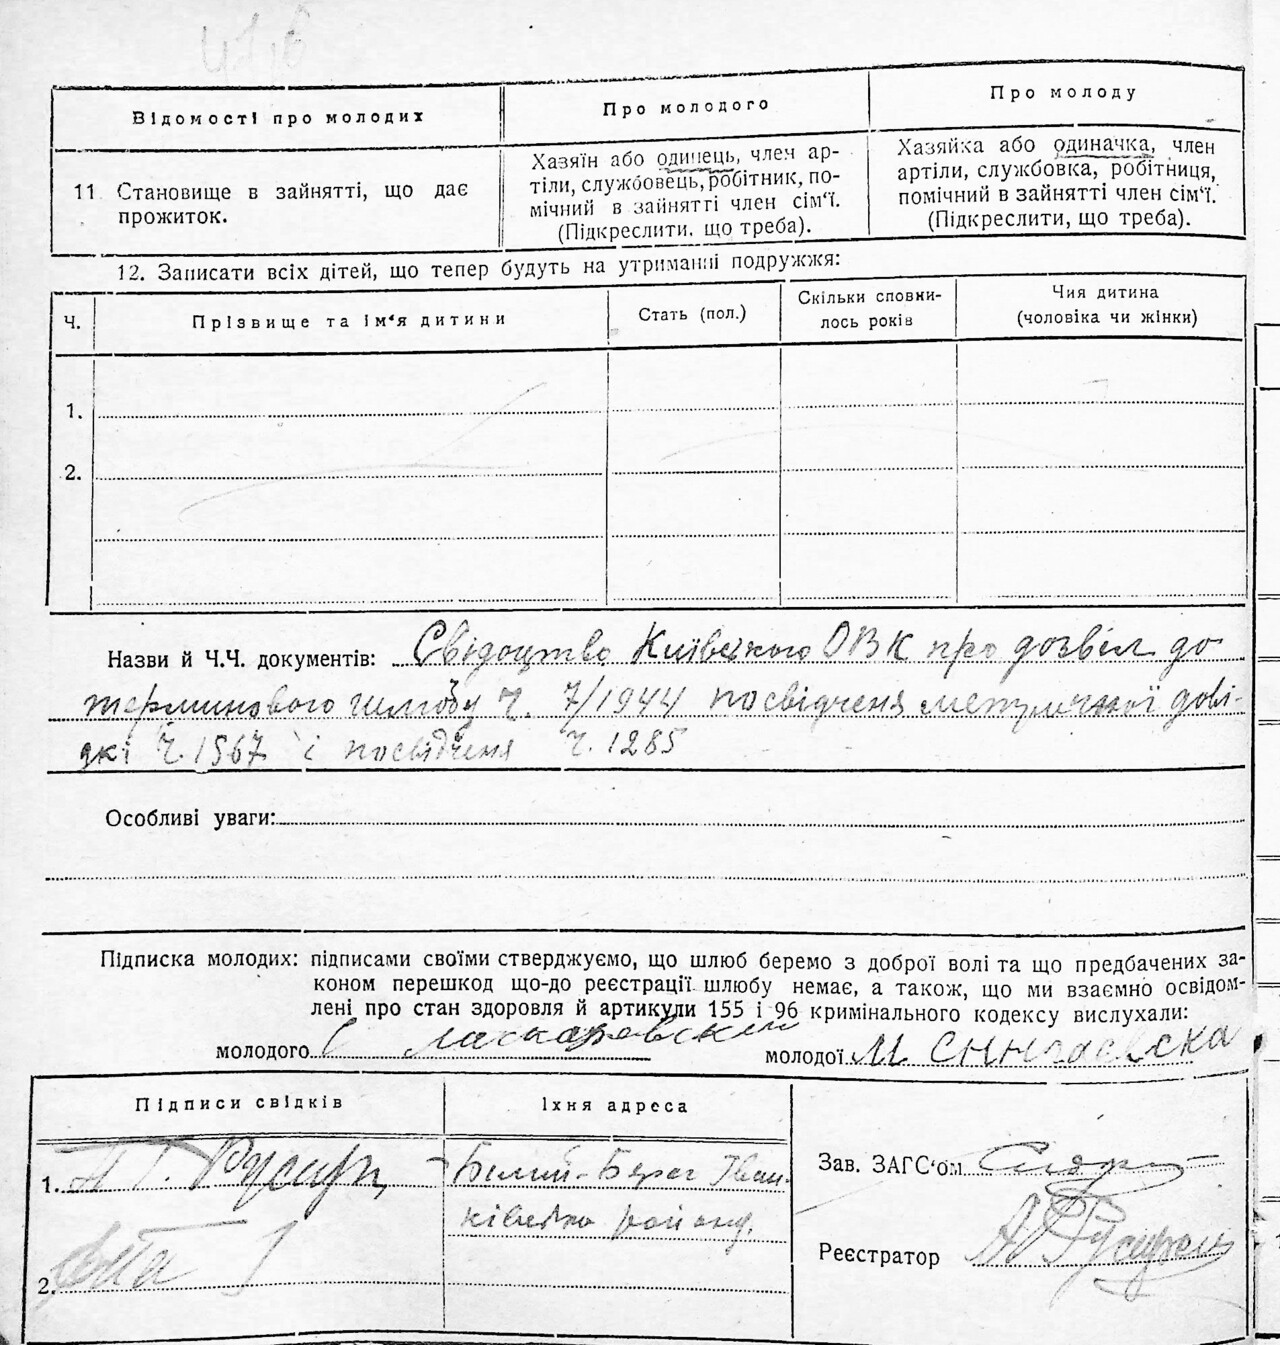 Відомості про молодих
Про молодого
Про молоду
11. Становище в зайнятті, що дає
прожиток.
Хазяїн або одинець, член ар-
тілі, службовець, робітник, по-
мічний в зайнятті член сім‘ї.
(Підкреслити, що треба).
Хазяйка або одиначка, член
артілі, службовка, робітниця,
помічний в зайнятті член сім‘ї.
(Підкреслити, що треба).
12. Записати всіх дітей, що тепер будуть на утриманні подружжя:
Ч.
Прізвище та ім‘я дитини
Стать (пол.)
Скільки сповни-
лось років
Чия дитина
(чоловіка чи жінки)
1.
2.
Назви й Ч.Ч. документів: Свідоцтво Київського ОВК про дозвіл до
терминового шлюбу ч. 7/1944 посвідченя метричної дові-
дкі ч. 1567 і посвідченя ч. 1285
Особливі уваги:
Підписка молодих: підписами своїми стверджуємо, що шлюб беремо з доброї волі та що предбачених за-
коном перешкод що-до реєстрації шлюбу немає, а також, що ми взаємно освідом-
лені про стан здоровля й артикули 155 і 96 кримінального кодексу вислухали:
молодого
молодої М
Підписи свідків
Їхня адреса
1. А Г.
Білий-Берег Іван-
ківсько району.
2.
Зав. ЗАГС‘ом
Реєстратор